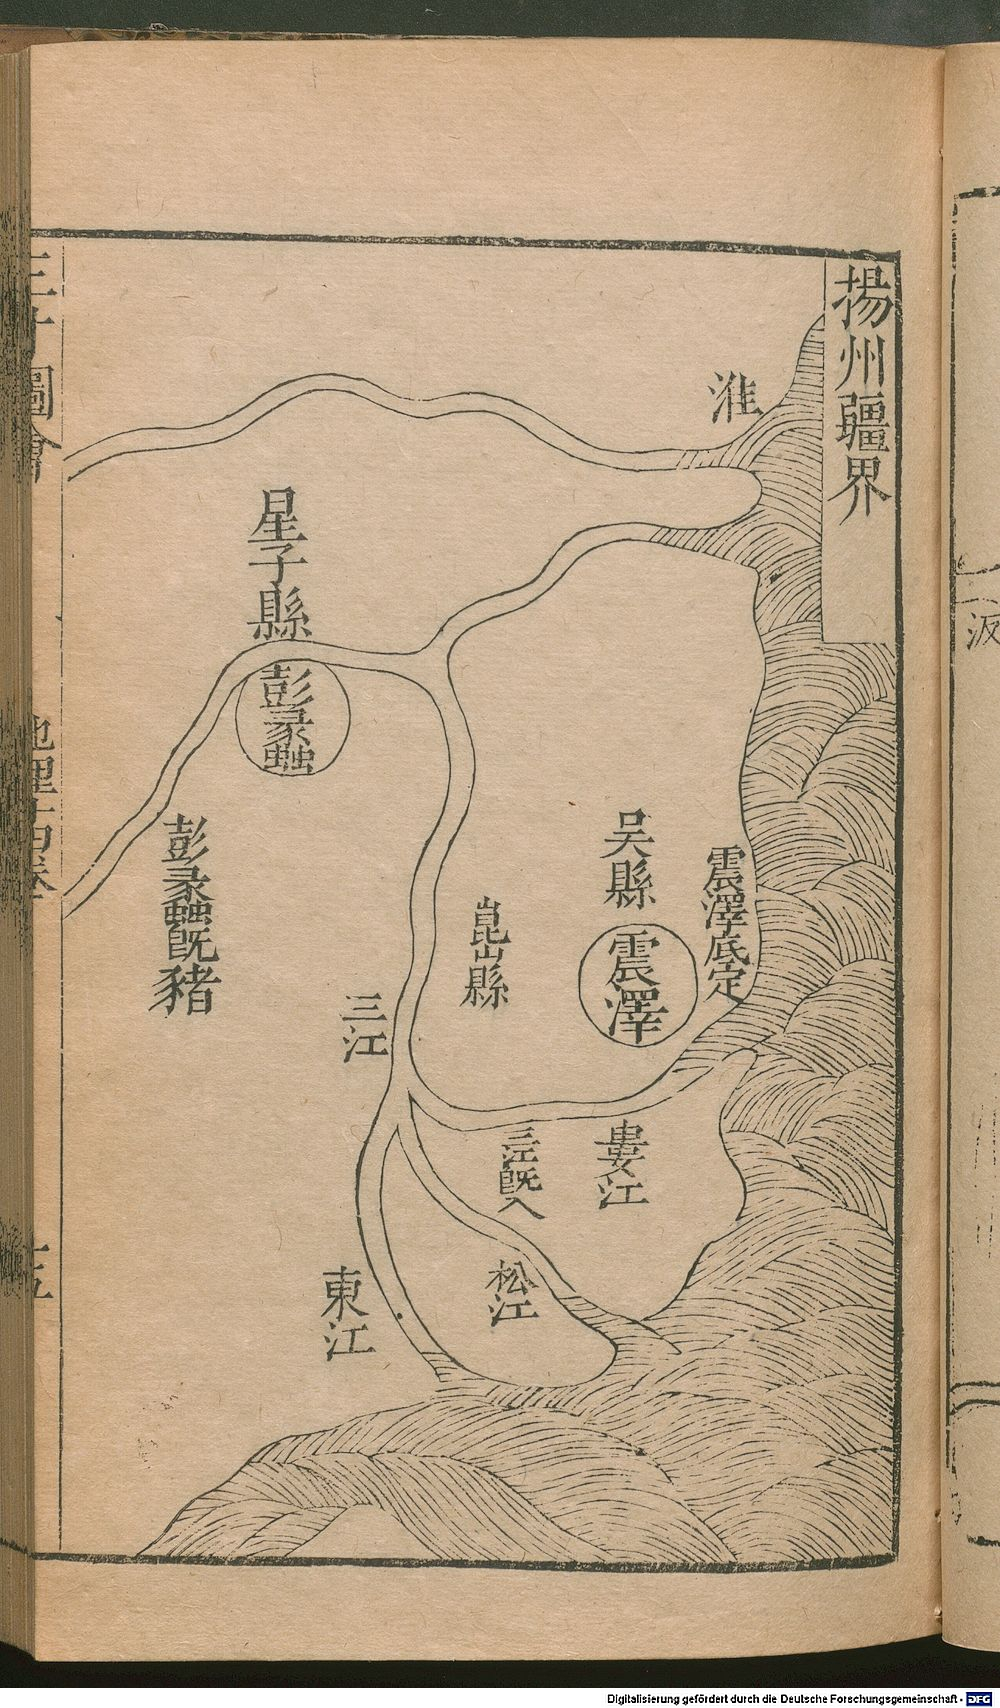 揚州疆界
淮
星子縣
彭蠡
彭蠡既豬
吳縣
震澤
震澤底定
崑山縣
三江
三江既入
婁江
松江
東江
三才圖會
地理十四卷
十五
Digitalisierung gefördert durch die Deutsche Forschungsgemeinschaft - DFG